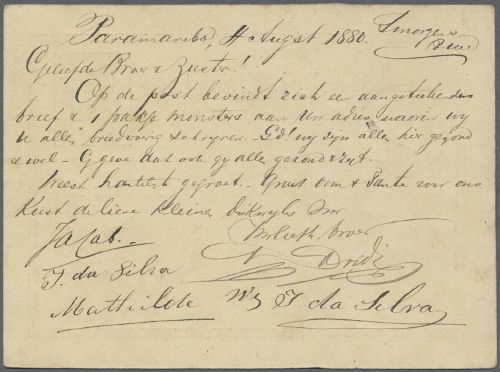 Paramaribo, 4 Augst 1880.
Smorgens
Geliefde Broer & Zuster!
Op de post bevindt zich een aangeteekenden
brief & 1 pakje monsters aan Uw adres, waarin wy
u alle, briedvoerig schryven. Gd' wy zyn alle hier gezond
& wel – G geve dat ook gy alle gezond & zyt.
Weest hartelyk gegroet. – Groet Oom & Tante voor ons
Kust de lieve kleine,
Jacob.
Broer
J. da Silva
Mathilde
J da Silva